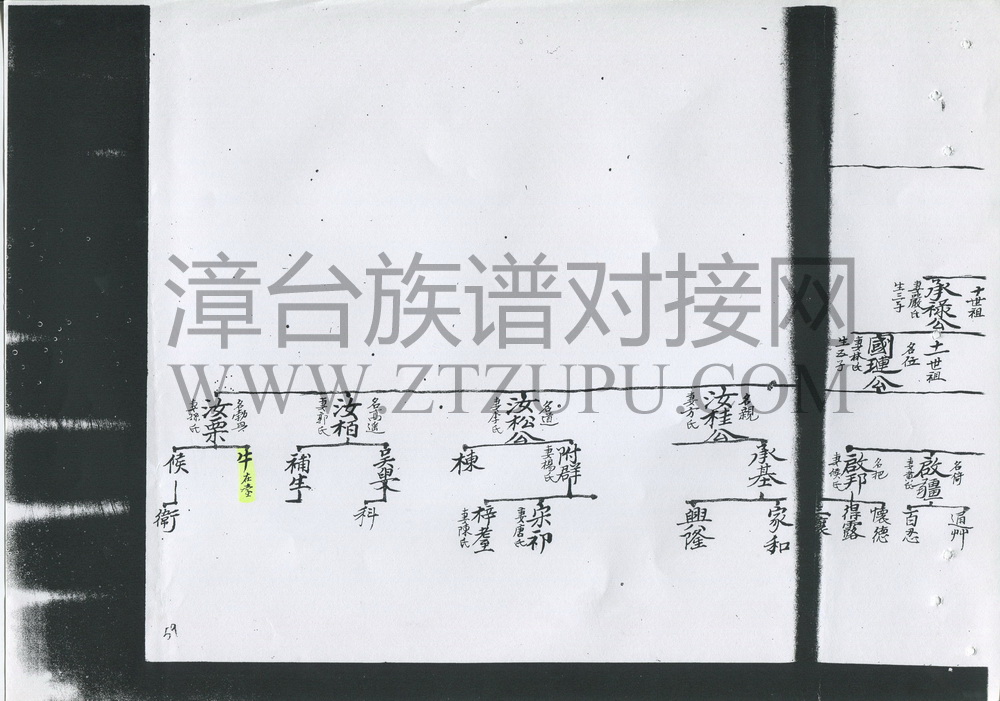 漳台族谱对接网
WWW.ZTZUPU.COM
十世祖
承祿公
妻嚴氏
生三子
十一世祖
名任
國璉公
妻林氏
生五子
名親
汝桂公
妻方氏
名道
汝松公
妻李氏
名高進
汝柏
妻郭氏
汝栗
妻孫氏
啟疆
名把
啟邦
妻侯氏
承基
附群
妻楊氏
棟
吳舉
補生
牛在臺
候
百忍
懷德
得露
家和
興隆
宗祁
妻唐氏
妻陳氏
科
衛
59